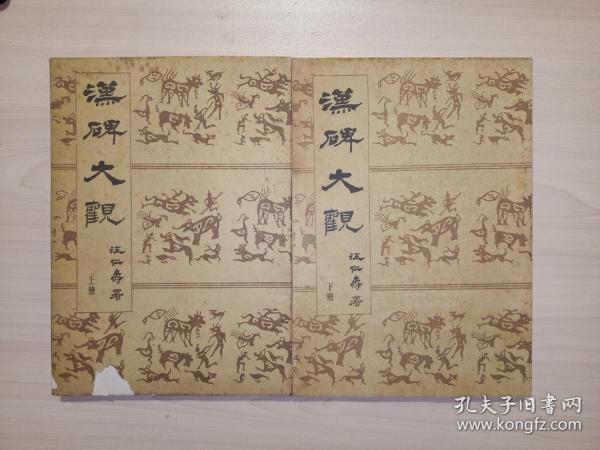 漢碑大觀
汪仁壽署
上册
漢碑大觀
汪仁壽署
下册
孔夫子旧书网
www.kongfz.com